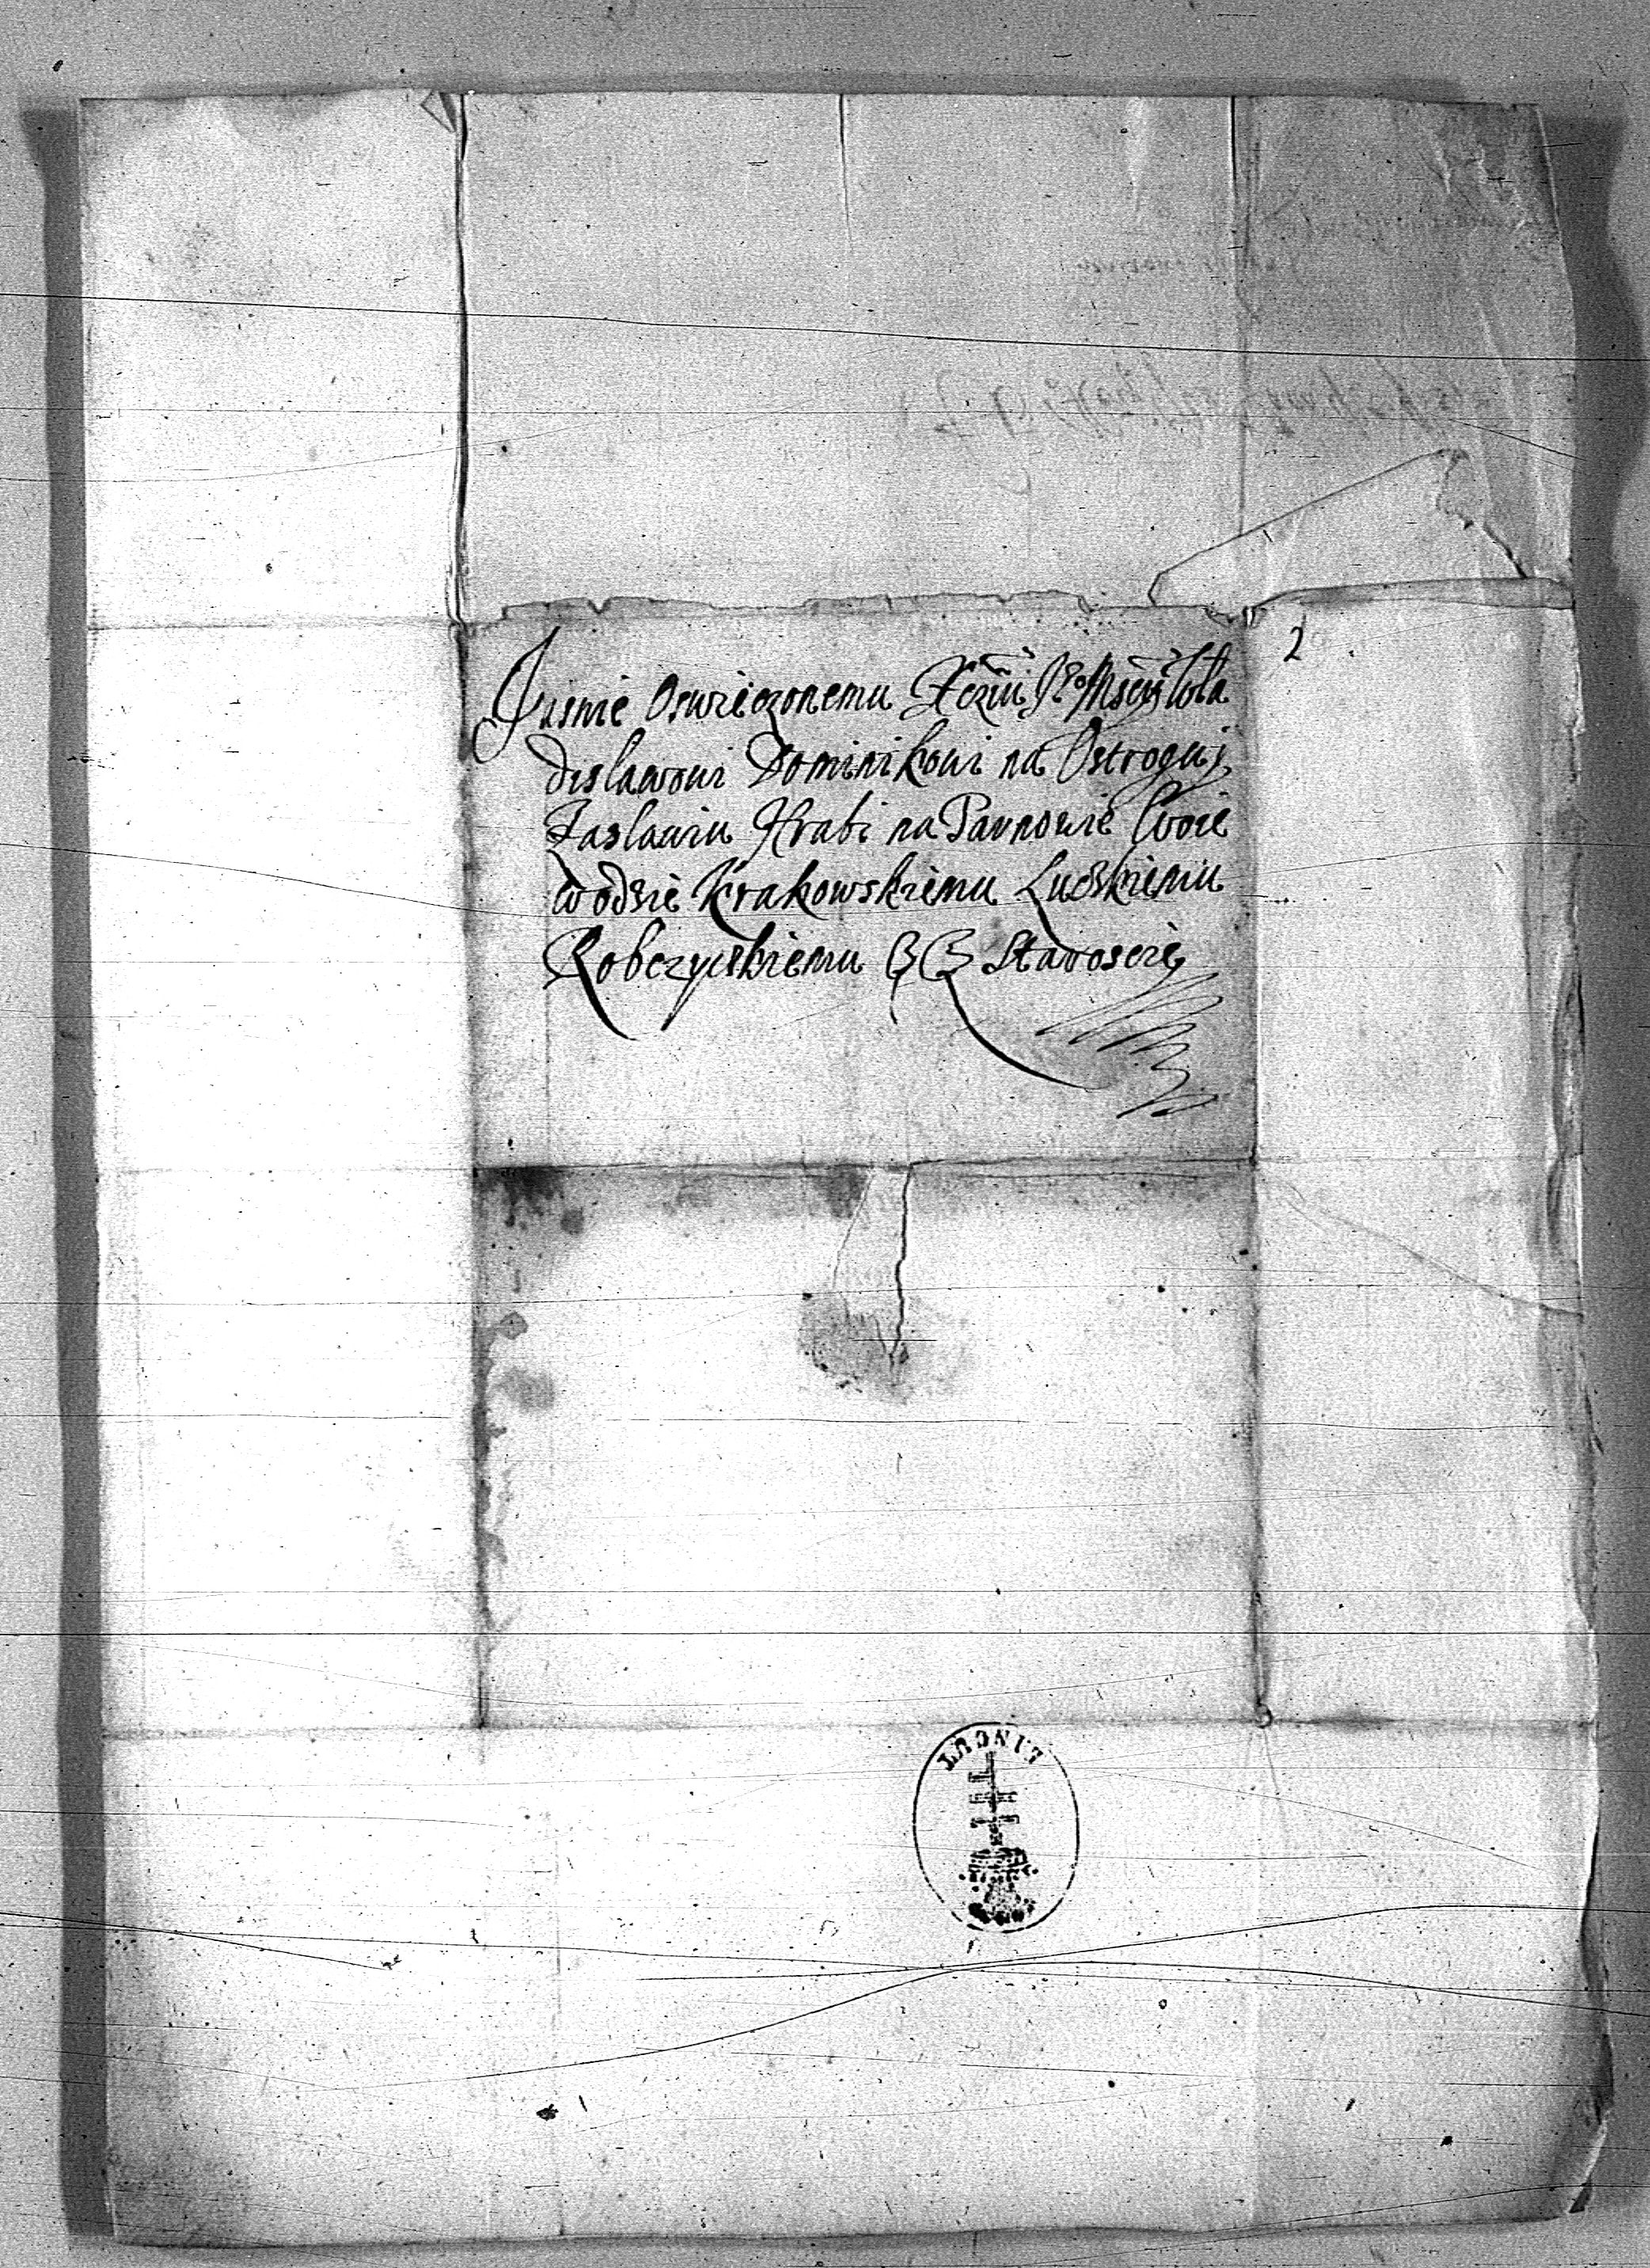 2
Jasnie Oswieczonemu Xczui Jº Mści Wla
dislawowi Dominikowi na Ostrogu j
Zaslawiu Hrabi na Tarnowie Woie
wodzie Krakowskiemu Luckiemu
Robczyckiemu Staroscie
LANCUT